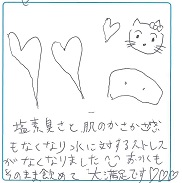 塩素臭さと、肌のかさかさ感
もなくなり水に対するストレス
がなくなりました おみずも
そのまま飲めて 大満足です♡♡♡